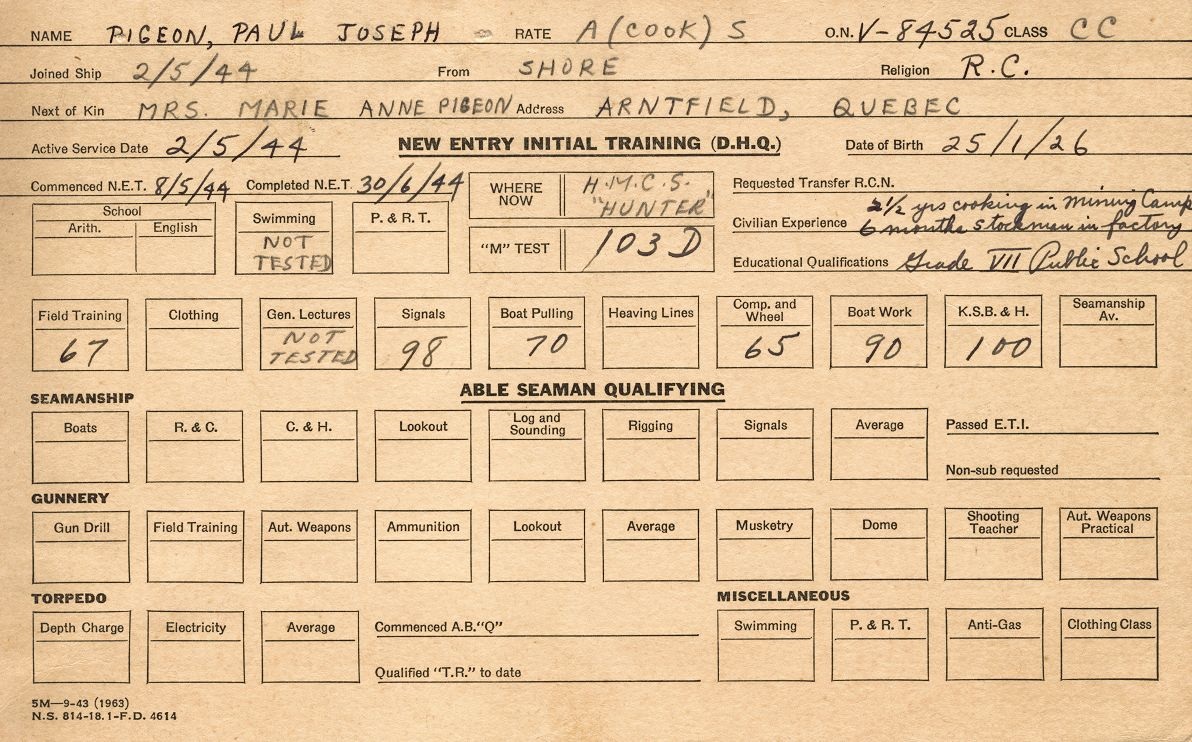 NAME PIGEON, PAUL JOSEPH RATE A (COOK) S O.N. V-84525 CLASS CC
Joined Ship 2/5/44 From SHORE Religion R.C.
Next of Kin MRS. MARIE ANNE PIGEON Address ARNTFIELD, QUEBEC
Active Service Date 2/5/44 NEW ENTRY INITIAL TRAINING (D.H.Q.) Date of Birth 25/1/26
Commenced N.E.T. 8/5/44 Completed N.E.T. 30/6/44 WHERE NOW H.M.C.S. "HUNTER" Requested Transfer R.C.N.
School Arith. English Swimming NOT TESTED P. & R. T. "M" TEST 103 D Civilian Experience 2 1/2 yrs cooking in Mining Camp
6 months stockman in factory
Educational Qualifications Grade VII Public School
Field Training Clothing Gen. Lectures Signals Boat Pulling Heaving Lines Comp. and Wheel Boat Work K.S.B. & H. Seamanship Av.
67 NOT TESTED 98 70 65 90 100
SEAMANSHIP ABLE SEAMAN QUALIFYING
Boats R. & C. C. & H. Lookout Log and Sounding Rigging Signals Average Passed E.T.I.
Non-sub requested
GUNNERY
Gun Drill Field Training Aut. Weapons Ammunition Lookout Average Musketry Dome Shooting Teacher Aut. Weapons Practical
TORPEDO MISCELLANEOUS
Depth Charge Electricity Average Commenced A.B."Q" Swimming P. & R. T. Anti-Gas Clothing Class
Qualified "T.R." to date
5M—9-43 (1963)
N.S. 814-18.1-F.D. 4614